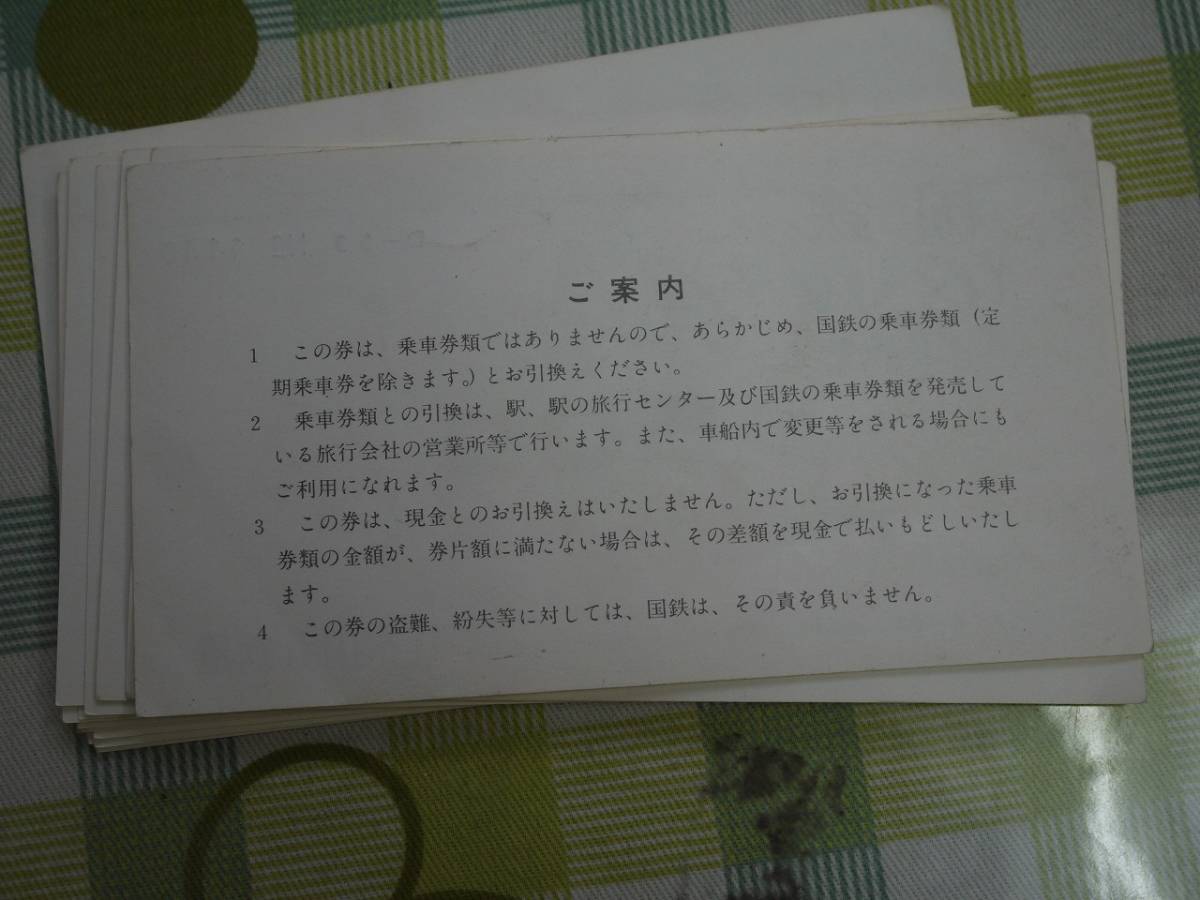 ご案内
1 この券は、乗車券類ではありませんので、あらかじめ、国鉄の乗車券類（定
期乗車券を除きます。）とお引換えください。
2 乗車券類との引換は、駅、駅の旅行センター及び国鉄の乗車券類を発売して
いる旅行会社の営業所等で行います。また、車船内で変更等をされる場合にも
ご利用になれます。
3 この券は、現金とのお引換えはいたしません。ただし、お引換になった乗車
券類の金額が、券片額に満たない場合は、その差額を現金で払いもどしいたし
ます。
4 この券の盗難、紛失等に対しては、国鉄は、その責を負いません。